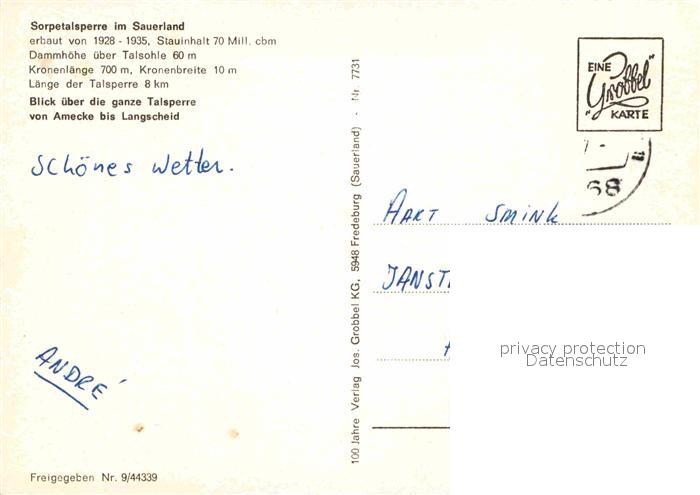 Sorpetalsperre im Sauerland
erbaut von 1928 - 1935, Stauinhalt 70 Mill. cbm
Dammhöhe über Talsohle 60 m
Kronenlänge 700 m, Kronenbreite 10 m
Länge der Talsperre 8 km
Blick über die ganze Talsperre
von Amecke bis Langscheid
Schönes Wetter.
ANDRÉ
Freigegeben Nr. 9/44339
100 Jahre Verlag Jos. Grobbel KG, 5948 Fredeburg (Sauerland) - Nr. 7731
EINE
"Grobbel"
KARTE
68
AART SMINK
privacy protection
Datenschutz